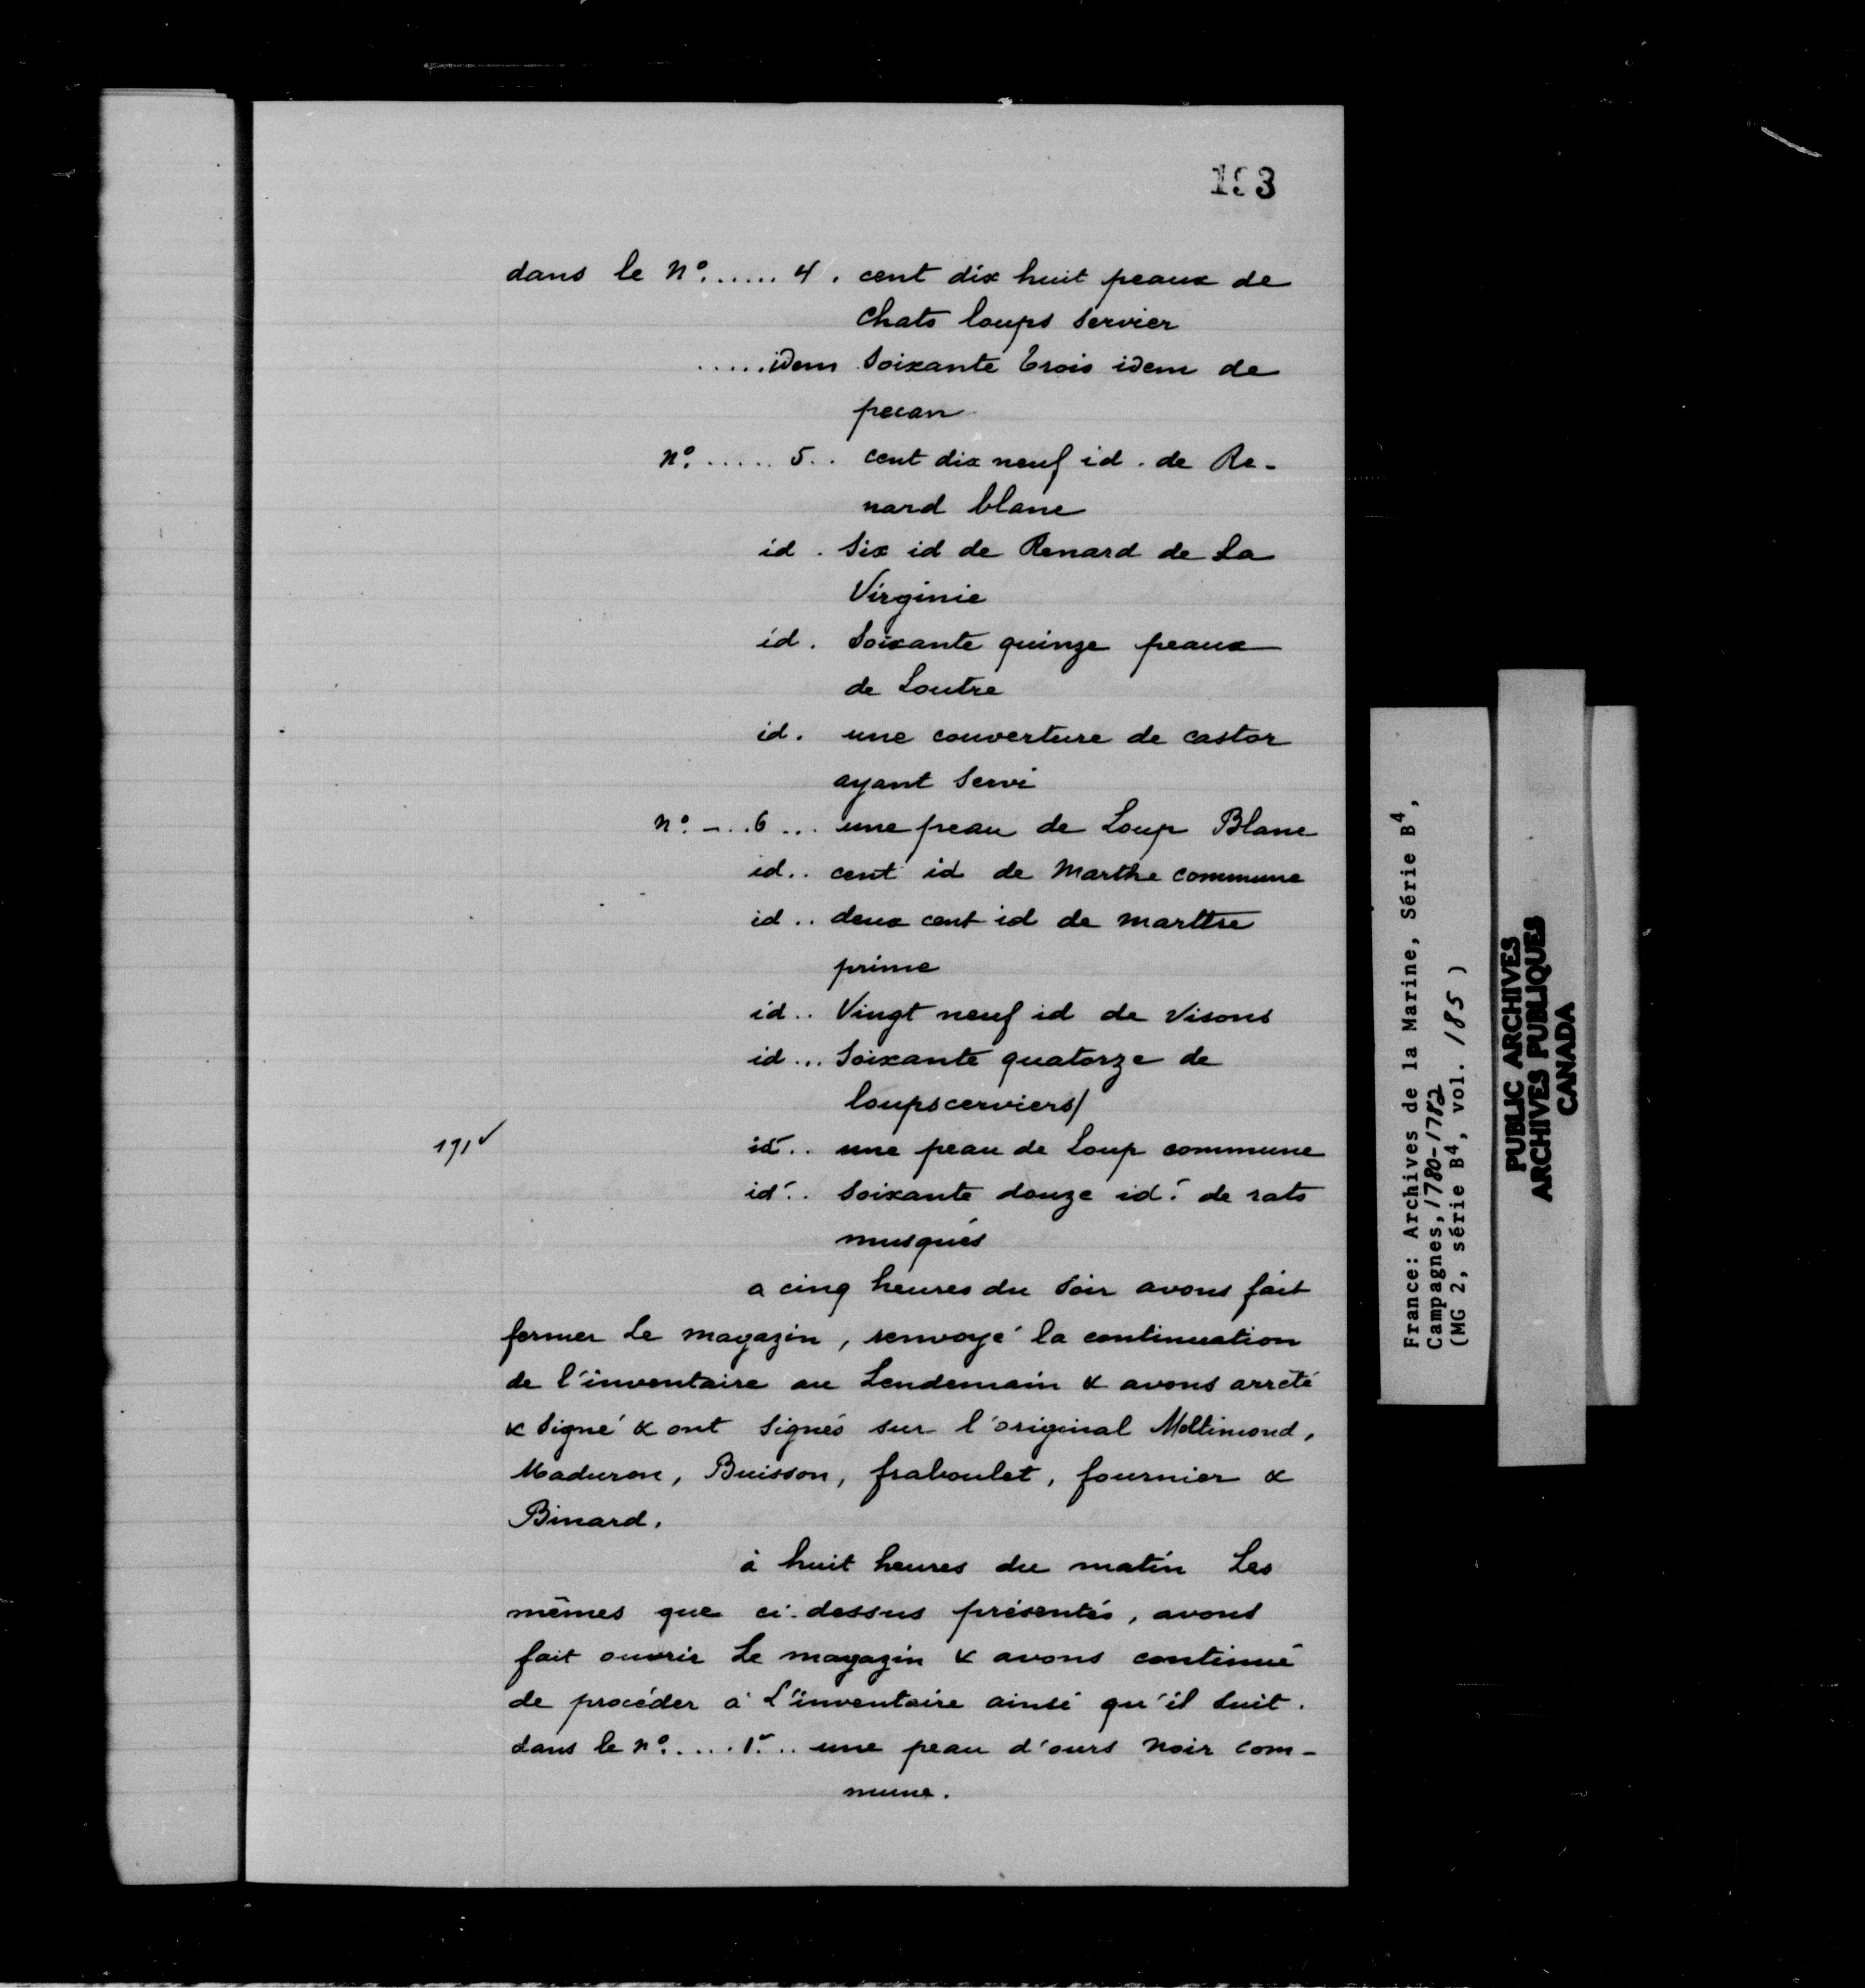 193
dans le n° ...... 4 . cent dix huit peaux de
chats loups servier
..... idem soixante trois idem de
pecan
n° ...... 5 .. cent dix neuf id. de Re-
nard blanc
id . Six id de Renard de La
Virginie
id . Soixante quinze peaux
de Loutre
id . une couverture de castor
ayant Servi
n° - .. 6 ... une peau de Loup Blanc
id .. cent id de Marthe commune
id .. deux cent id de marthe
prime
id .. Vingt neuf id de Visons
id ... Soixante quatorze de
loupscerviers/
191v
id .. une peau de Loup commune
id .. Soixante douze id. de rats
musqués
a cinq heures du Soir avons fait
fermer Le magazin, renvoyé la continuation
de l'inventaire au Lendemain & avons arrêté
& Signé & ont Signés sur l'original Moltimond,
Maduron, Buisson, fraboulet, fournier &
Binard.
à huit heures du matin Les
mêmes que ci-dessus présentés, avons
fait ouvrir Le magazin & avons continué
de procéder à L'inventaire ainsi qu'il Suit.
dans le n° .... 1er .. une peau d'ours Noir com-
mune.
France: Archives de la Marine, Série B4,
Campagnes, 1780-1782
(MG 2, série B4, vol. 185)
PUBLIC ARCHIVES
ARCHIVES PUBLIQUES
CANADA